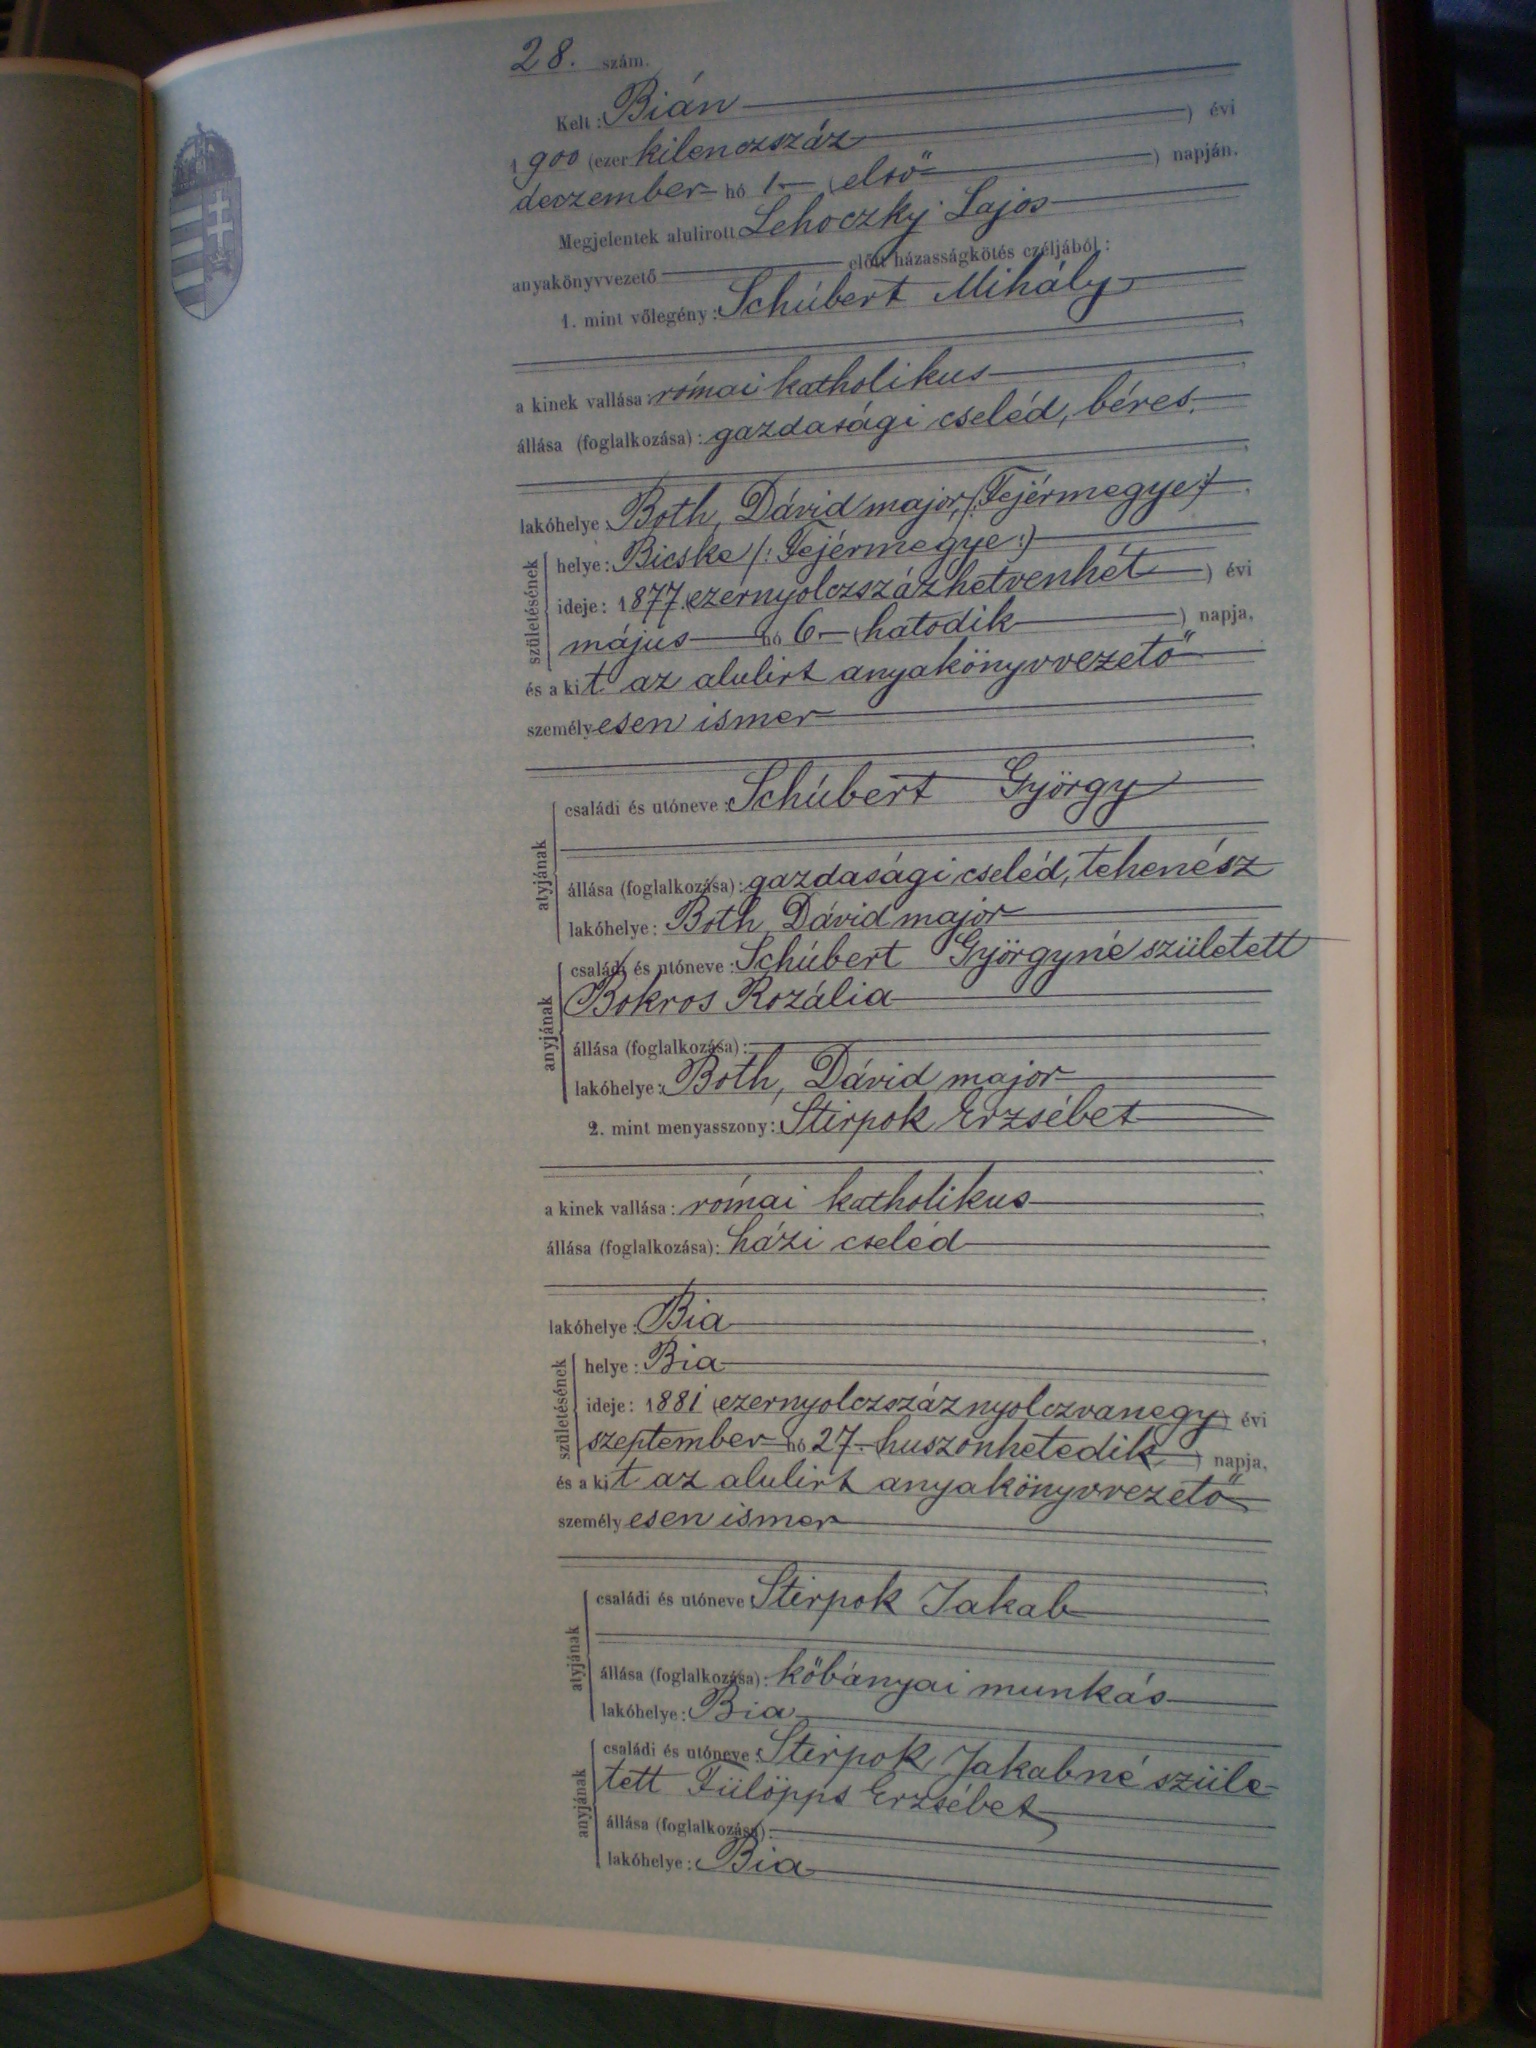 28. szám.
Kelt: Bián
1900 (ezer kilenczszáz) évi
deczember hó 1. (első) napján.
Megjelentek alulirott Lehoczky Lajos
anyakönyvvezető előtt házasságkötés czéljából:
1. mint vőlegény: Schúbert Mihály
a kinek vallása: római katholikus
állása (foglalkozása): gazdasági cseléd, béres.
lakóhelye: Both, Dávid major, (: Fejérmegye :)
születésének
helye: Bicske (: Fejérmegye :)
ideje: 1877 (ezernyolczszázhetvenhét) évi
május hó 6. (hatodik) napja,
és a kit az alulirt anyakönyvvezető
személyesen ismer
atyjának
családi és utóneve: Schúbert György
állása (foglalkozása): gazdasági cseléd, tehenész
lakóhelye: Both, Dávid major
anyjának
családi és utóneve: Schúbert Györgyné született
Bokros Rozália
állása (foglalkozása):
lakóhelye: Both, Dávid major
2. mint menyasszony: Stirpok Erzsébet
a kinek vallása: római katholikus
állása (foglalkozása): házi cseléd
lakóhelye: Bia
születésének
helye: Bia
ideje: 1881 (ezernyolczszáznyolczvanegy) évi
szeptember hó 27. (huszonhetedik) napja,
és a kit az alulirt anyakönyvvezető
személyesen ismer
atyjának
családi és utóneve: Stirpok Jakab
állása (foglalkozása): kőbányai munkás
lakóhelye: Bia
anyjának
családi és utóneve: Stirpok Jakabné szüle-
tett Fülöpps Erzsébet
állása (foglalkozása):
lakóhelye: Bia